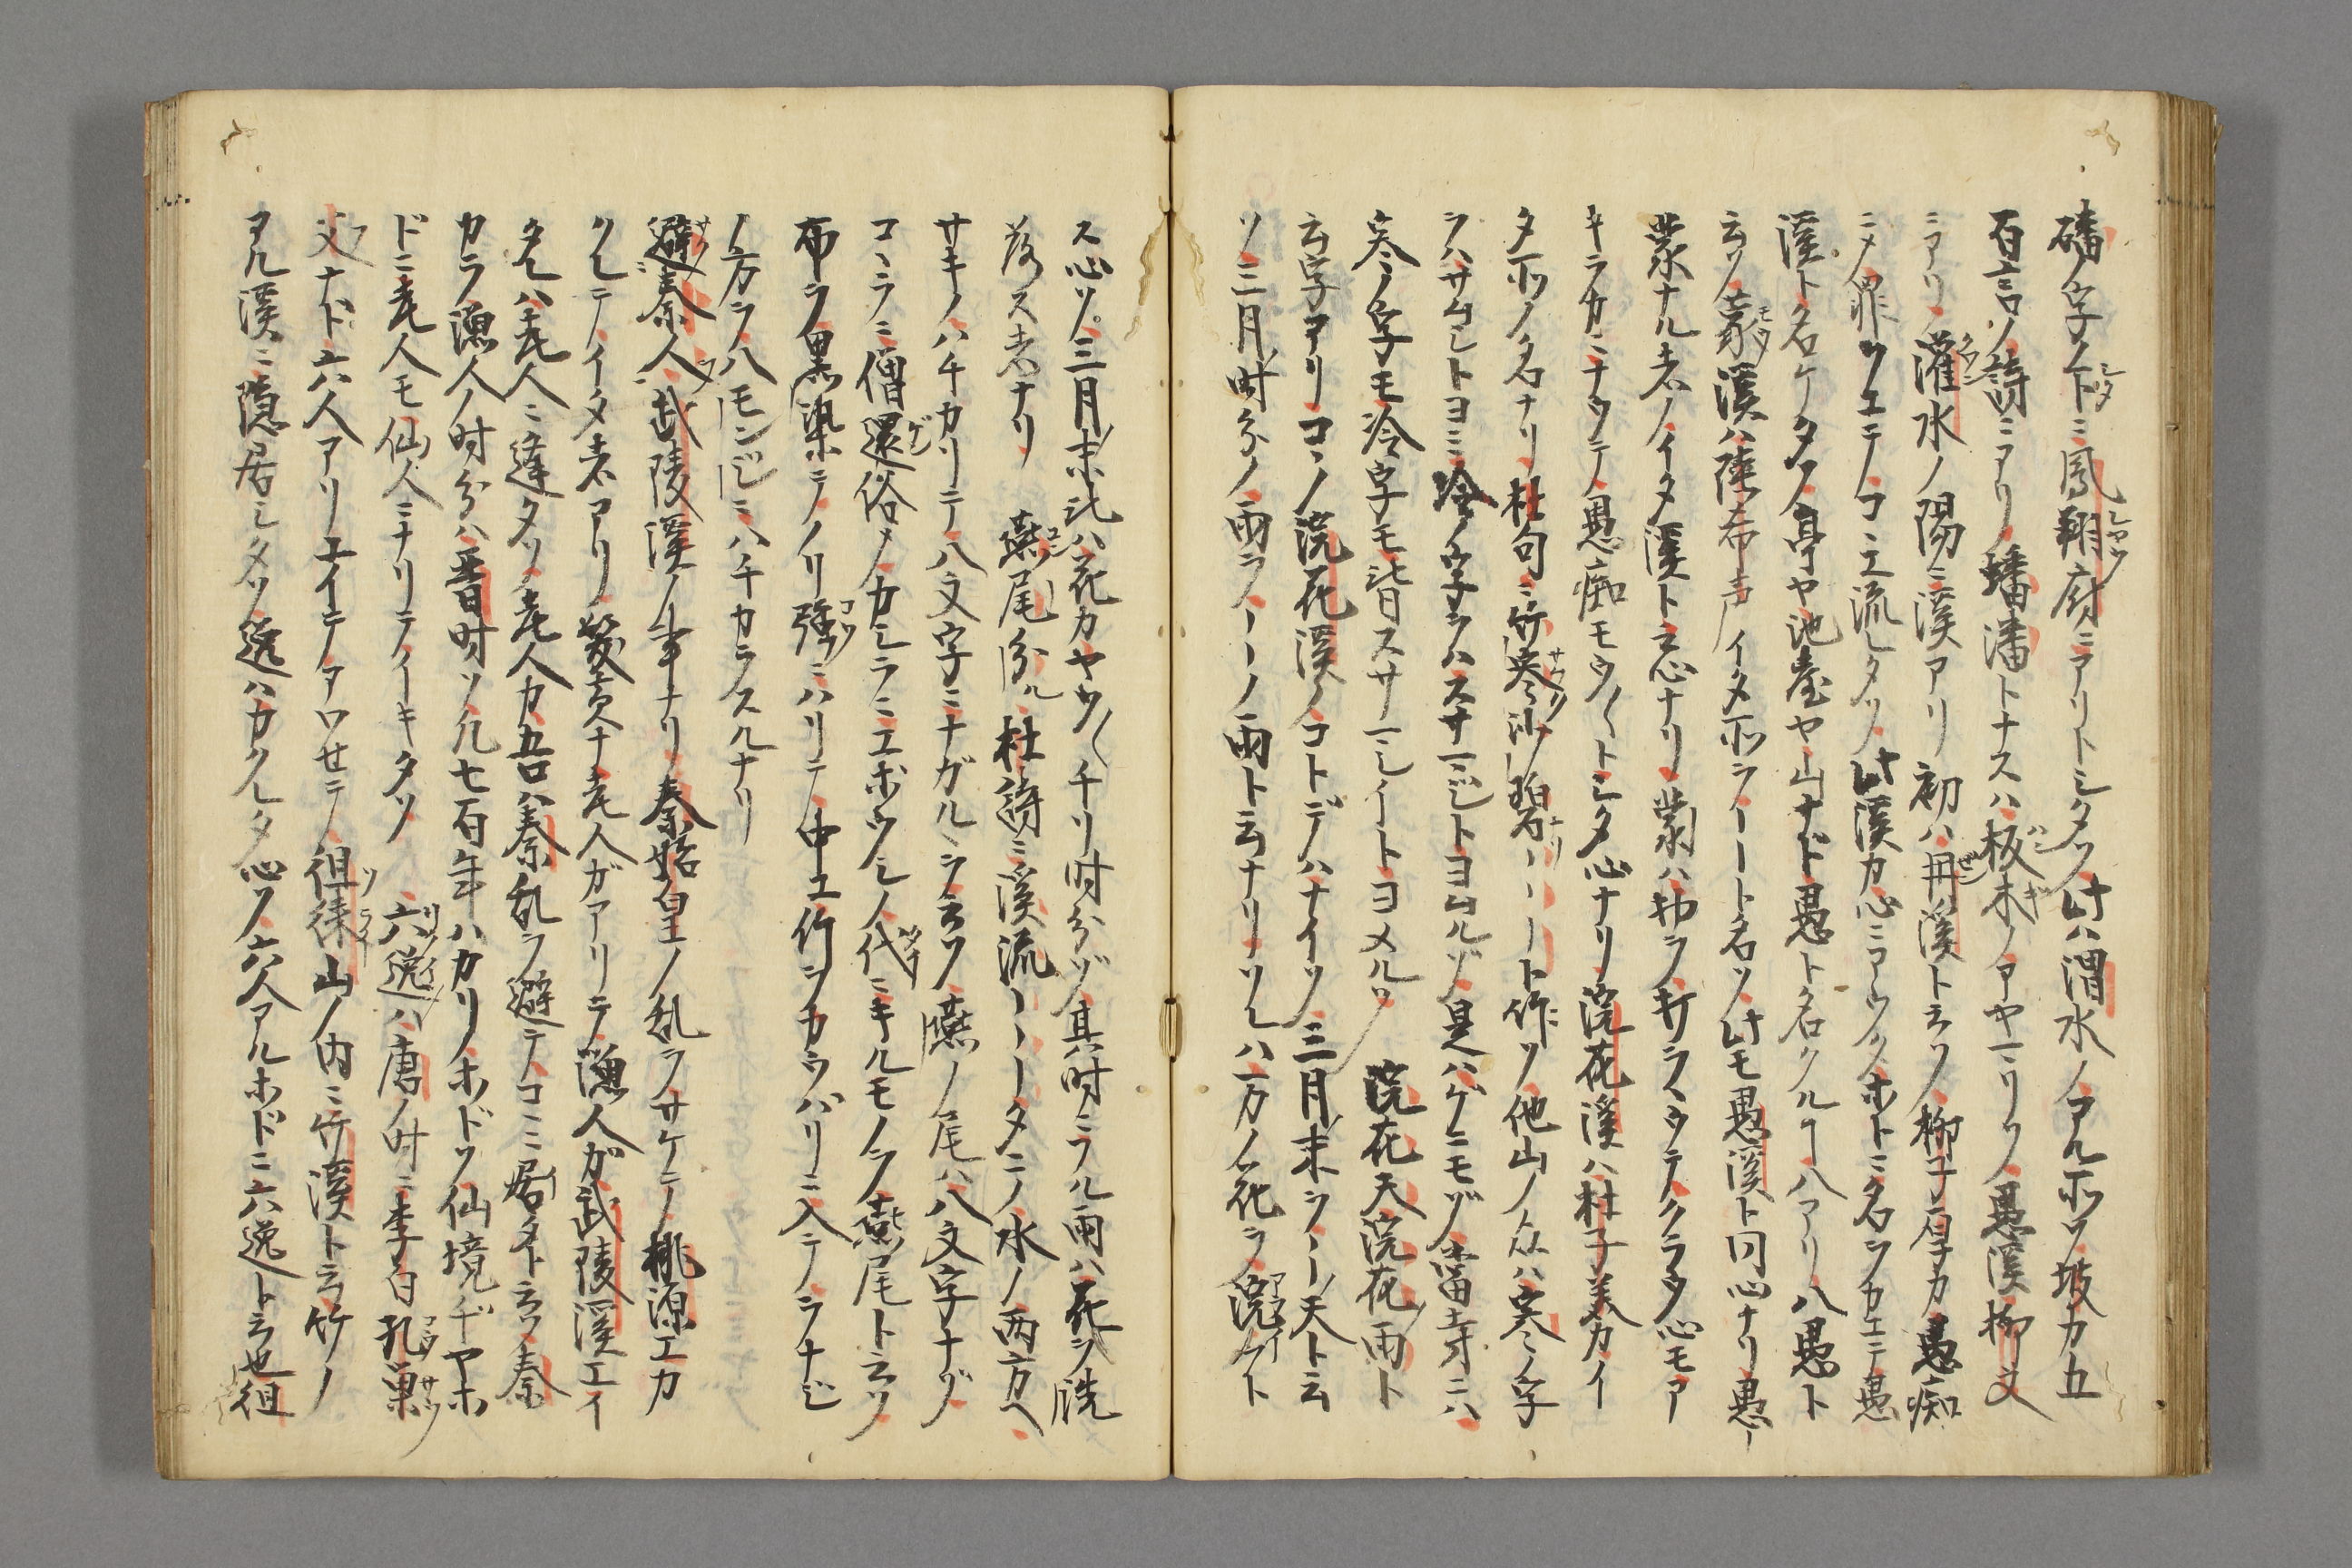 磻ノ字ノ下ニ鳳翔府ニアリトシタソ此ハ渭水ノアル所ソ坡カ五
百言ノ詩ニアリ蟠潘トナスハ板木ノアヤマリソ愚溪柳文
ニアリ灌水ノ陽ニ溪アリ初ハ冉溪ト云ソ柳子厚カ愚痴
ニメ罪ウエテコヽエ流レタソ此溪カ心ニアウタホトニ名ラカエテ愚
溪ト名ケタソ亭ヤ池臺ヤ山ナド愚ト名クルヿ八アリ八愚ト
云ソ蒙溪ハ陸布声イタ所ラート名ソ此モ愚溪ト同心ナリ愚ー
蒙ナル者ノイタ溪ト云心ナリ蒙ハ物ラ
キラカニナウテ愚痴モウ〱トシタ心ナリ浣花溪ハ杜子美カイ
タ所ノ名ナリ杜句ニ竹寒沙碧ーーート作ソ他山ノ点ハ寒ノ字
ラハサムシトヨミ冷ノ字ラハスサマシトヨムルソ是ハゲニモゾ當寺ニハ
寒ノ字モ冷字モ皆スサマシイトヨメルソ 浣花天浣花雨ト
云字アリコノ浣花溪ノコトデハナイソ三月末ツー天ト云
ソ三月時分ノ雨ラーーノ雨ト云ナリソレハ万ノ花ラ浣フト
ス心ソ三月末比ハ花カヤウ〱チリ時分ゾ其時ニフル雨ハ花ラ洗
落ス者ナリ 燕尾分ル杜詩ニ溪流ーーータニノ水ノ両方ヘ
サキノハチカリテ八文字ニナガルヽラ云ソ燕ノ尾ハ八文字ナゾ
コヽラニ僧還俗メカシラニエボウシノ代ニキルモノラ燕尾ト云ソ
布ラ黒染テノリ強ニハリテ中エ竹ツカウバリニ入テラナジ
ノ方ラハモンジニハチカラスルナリ
避秦人武陵溪ノ事ナリ秦始皇ノ乱ラサケテ桃源エカ
クレテイタ者アリナ老人ガアリテ漁人ガ武陵溪エイ
タレハ老人ニ逢タソ老人カ吾ハ秦乱ラ避テコヽニ居タト云ソ秦
カラ漁人ノ時分ハ晋時ソ凡七百年ハカリノホドソ仙境ヂヤホ
ドニ老人モ仙人ニナリテイキタソ 六逸ハ唐ノ時ニ李白孔巣
父ナド六人アリエイテアワセテ徂徠山ノ内ニ竹溪ト云竹ノ
アル溪ニ隠居シタソ逸ハカクレタ心ソ六人アルホドニ六逸ト云也徂